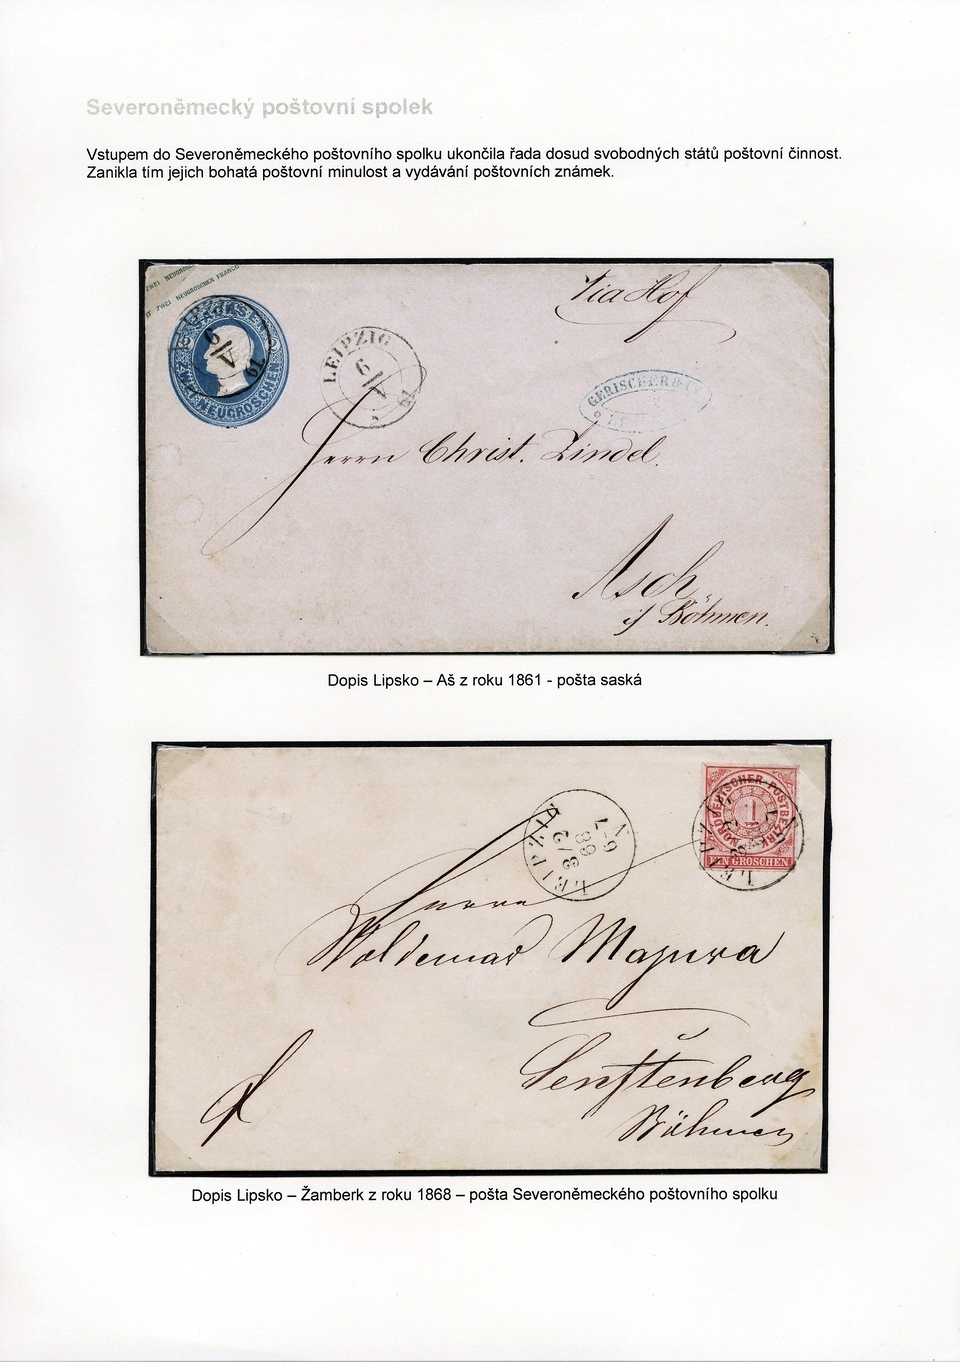 Severoněmecký poštovní spolek
Vstupem do Severoněmeckého poštovního spolku ukončila řada dosud svobodných států poštovní činnost.
Zanikla tím jejich bohatá poštovní minulost a vydávání poštovních známek.
ZWEI NEUGROSCHEN FRANCO
Via Hof
SACHSEN
ZWEI NEUGROSCHEN
6/V 61
LEIPZIG
6/V 61
GERISCHER & Co
Herrn Christ. Zindel.
Asch
i/ Böhmen.
Dopis Lipsko – Aš z roku 1861 - pošta saská
NORDDEUTSCHER POSTBEZIRK
1
EIN GROSCHEN
LEIPZIG
LEIPZIG
8/2
68
6-7
N
Herrn
Woldemar Mazura
Senftenberg
Böhmen
Dopis Lipsko – Žamberk z roku 1868 – pošta Severoněmeckého poštovního spolku